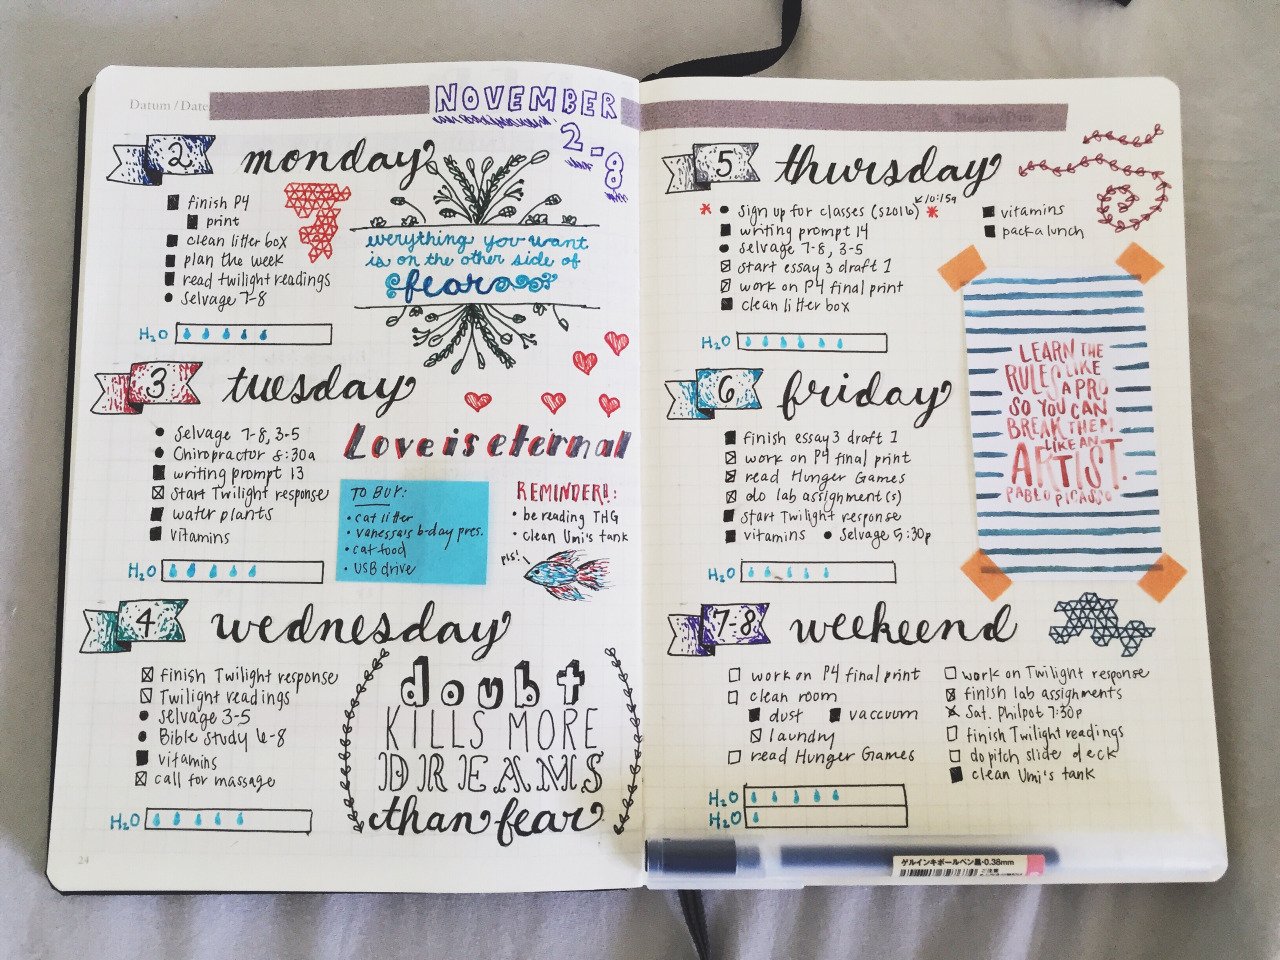 Datum / Date
NOVEMBER
2-8
2 monday
finish P4
print
clean litter box
plan the week
read twilight readings
Selvage 7-8
H2O
everything you want
is on the other side of
fear
3 tuesday
Selvage 7-8, 3-5
Chiropractor 8:30a
writing prompt 13
Start Twilight response
water plants
vitamins
H2O
Love is eternal
TO BUY:
• cat litter
• vanessa's b-day pres.
• cat food
• USB drive
REMINDER!!:
• be reading THG
• clean Umi's tank
pls!
4 wednesday
finish Twilight response
Twilight readings
Selvage 3-5
Bible Study 6-8
vitamins
call for massage
H2O
doubt
KILLS MORE
DREAMS
than fear
24
5 thursday
Sign up for classes (S2016) 10:15a
writing prompt 14
Selvage 7-8, 3-5
start essay 3 draft 1
work on P4 final print
clean litter box
vitamins
pack a lunch
H2O
6 friday
finish essay 3 draft 1
work on P4 final print
read Hunger Games
do lab assignment(s)
Start Twilight response
vitamins • Selvage 5:30p
H2O
LEARN THE
RULES LIKE
A PRO
SO YOU CAN
BREAK THEM
LIKE AN
ARTIST.
PABLO PICASSO
7-8 weekend
work on P4 final print
clean room
dust vaccuum
laundry
read Hunger Games
work on Twilight response
finish lab assignments
Sat. Philpot 7:30p
finish Twilight readings
do pitch slide deck
clean Umi's tank
H2O
H2O
ゲルインキボールペン黒・0.38mm